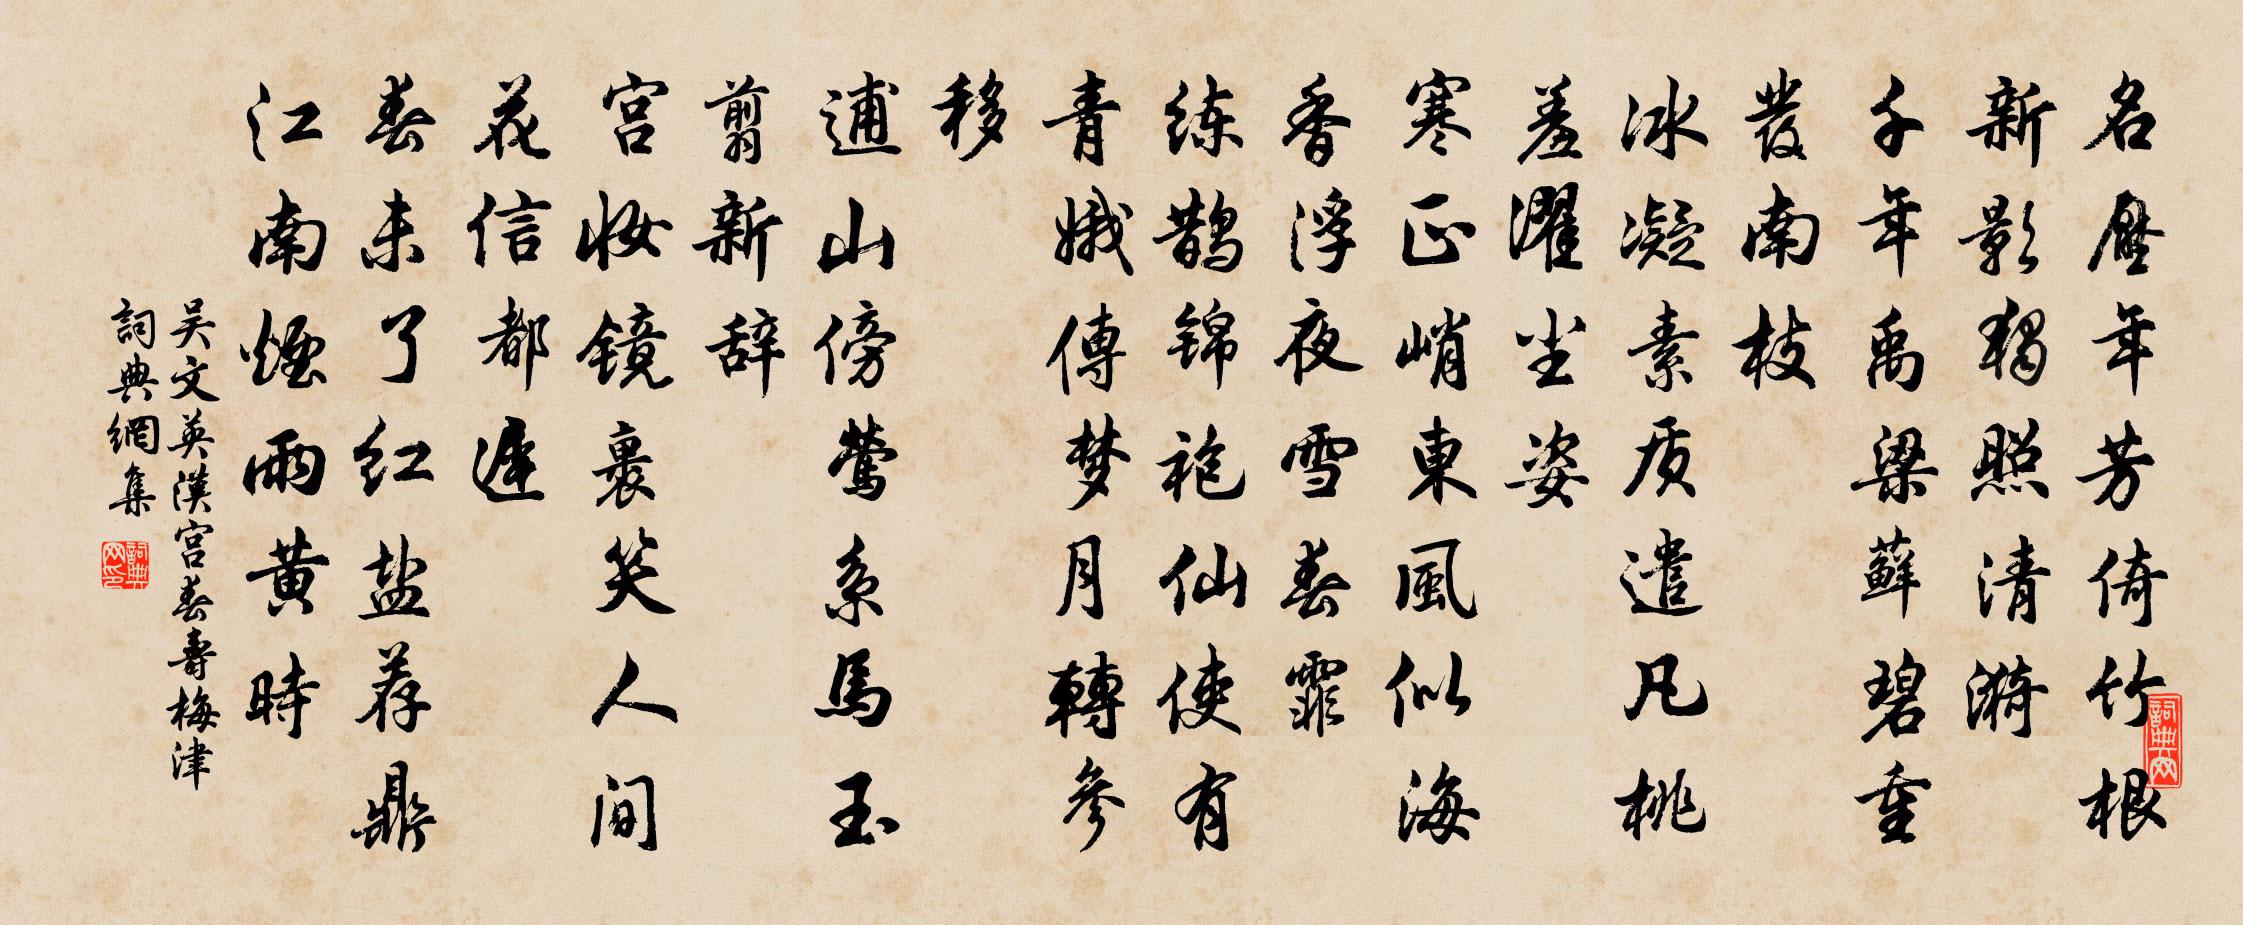 名壓年芳倚竹根
新影獨照清漪
千年禹梁蘚碧重
發南枝
冰凝素质遣凡桃
羞濯尘姿
寒正峭東風似海
香浮夜雪春霏
练鹊锦袍仙使有
青娥傳梦月轉參
移
逋山傍鶯系馬玉
翦新辞
宫妆镜裏笑人间
花信都遲
春未了红盐荐鼎
江南煙雨黄時
吴文英漢宫春壽梅津
詞典網集
詞典网印
詞典网